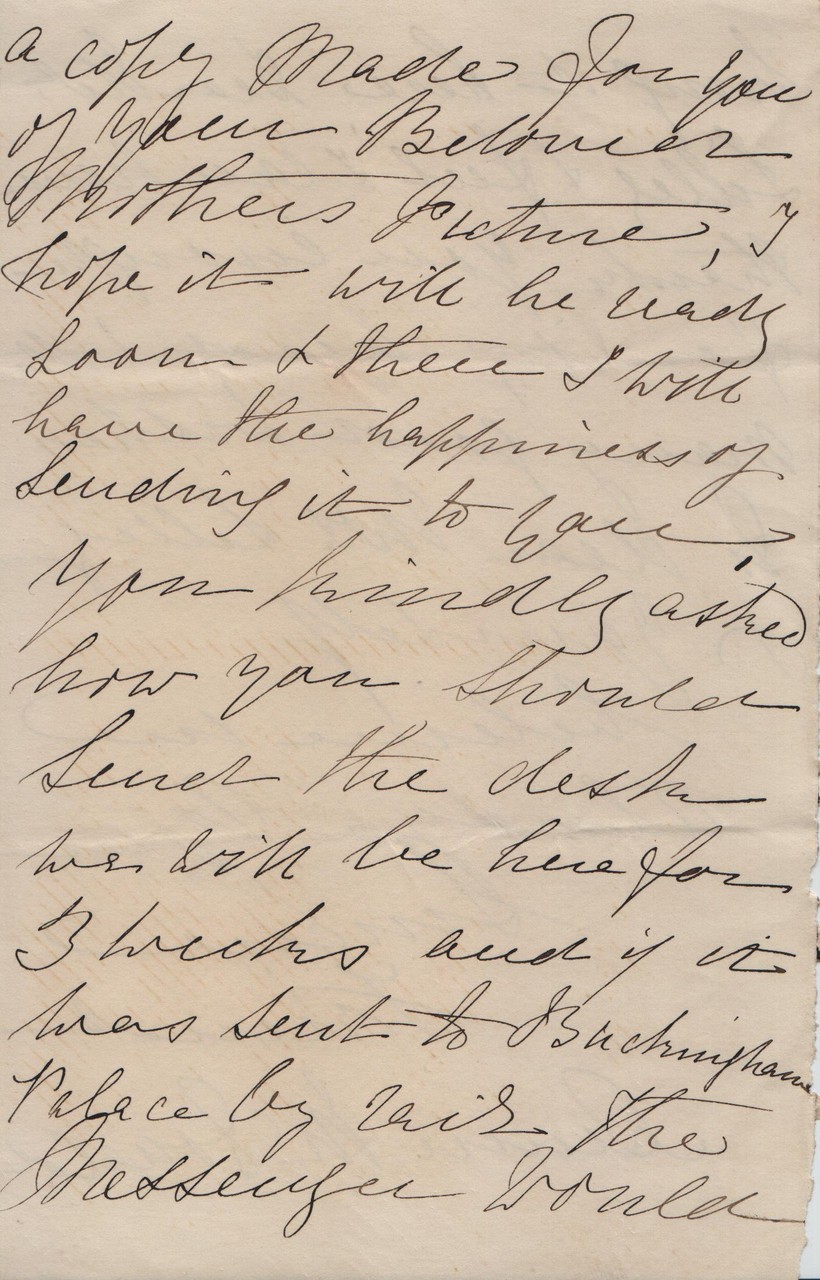 a copy Made for you
of your Beloved
Mothers Picture, I
hope it will be ready
soon & then I will
have the happiness of
sending it to you,
You kindly asked
how you should
send the desk
we will be here for
3 weeks and if it
was sent to Buckingham
Palace by rail the
Messenger would